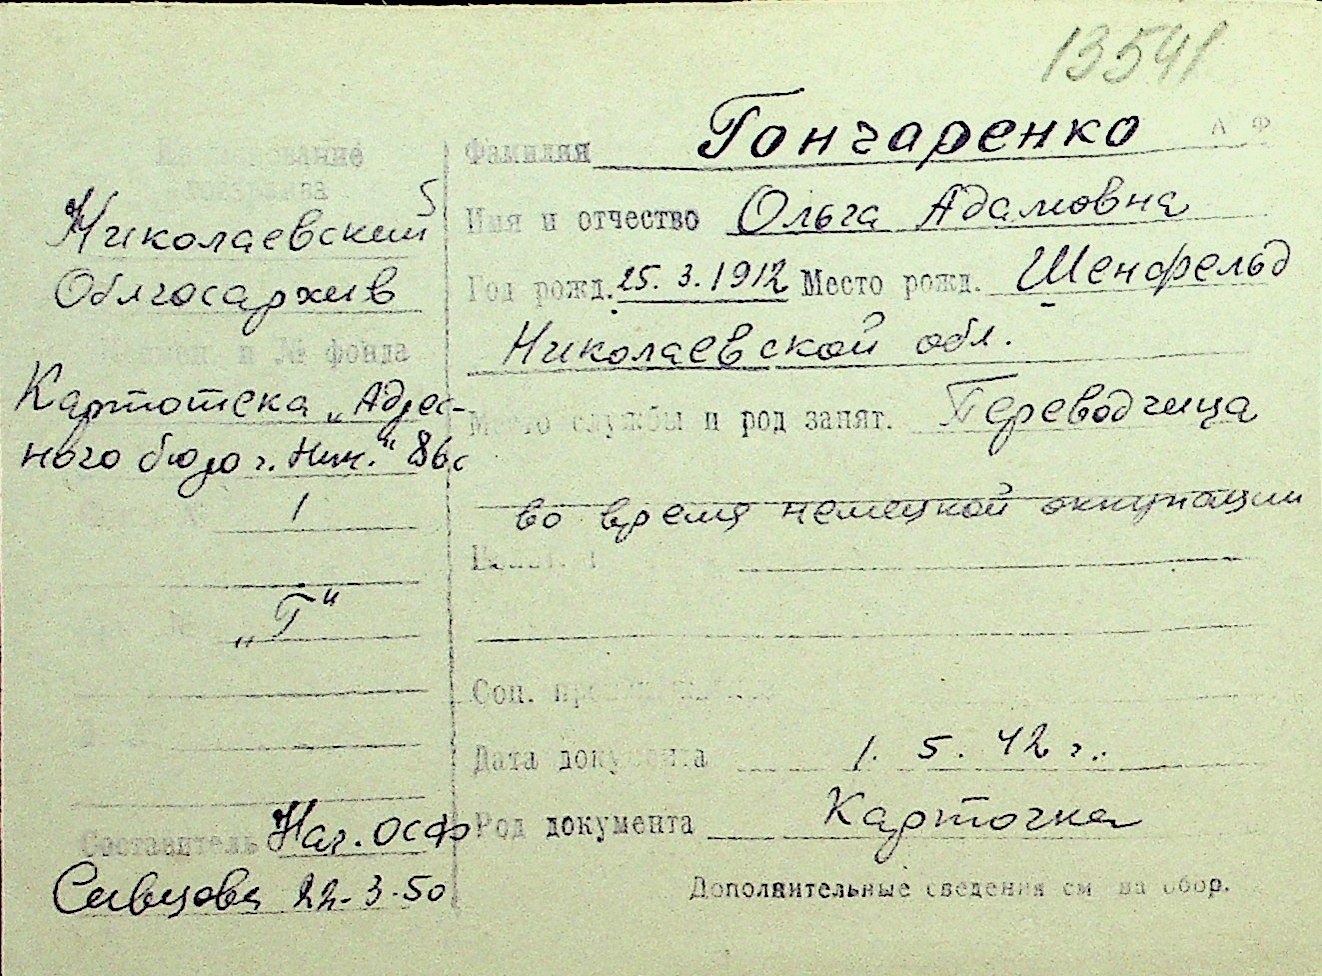 13541
А Ф
Наименование
Николаевский
Облгосархив
и № фонда
Картотека „Адрес-
ного бюро г. Ник."
1
№
„Г"
Составитель Нач. ОСФ
Сивцова 22-3-50
Фамилия Гончаренко
Имя и отчество Ольга Адамовна
Год рожд. 25.3.1912 Место рожд. Шенфельд
Николаевской обл.
Место службы и род занят. Переводчица
во время немецкой оккупации
Соц.
Дата документа 1.5.42 г.
Род документа Карточка
Дополнительные сведения см на обор.